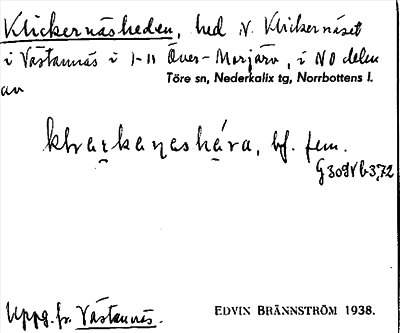 Klickernäsheden, hed N. Klickernäset
i Västannäs i 1-11 Över-Morjärv, i NO delen
Töre sn, Nederkalix tg, Norrbottens l.
av
bf. fem.
G309Vb372
Uppg. fr. Västannäs.
EDVIN BRÄNNSTRÖM 1938.